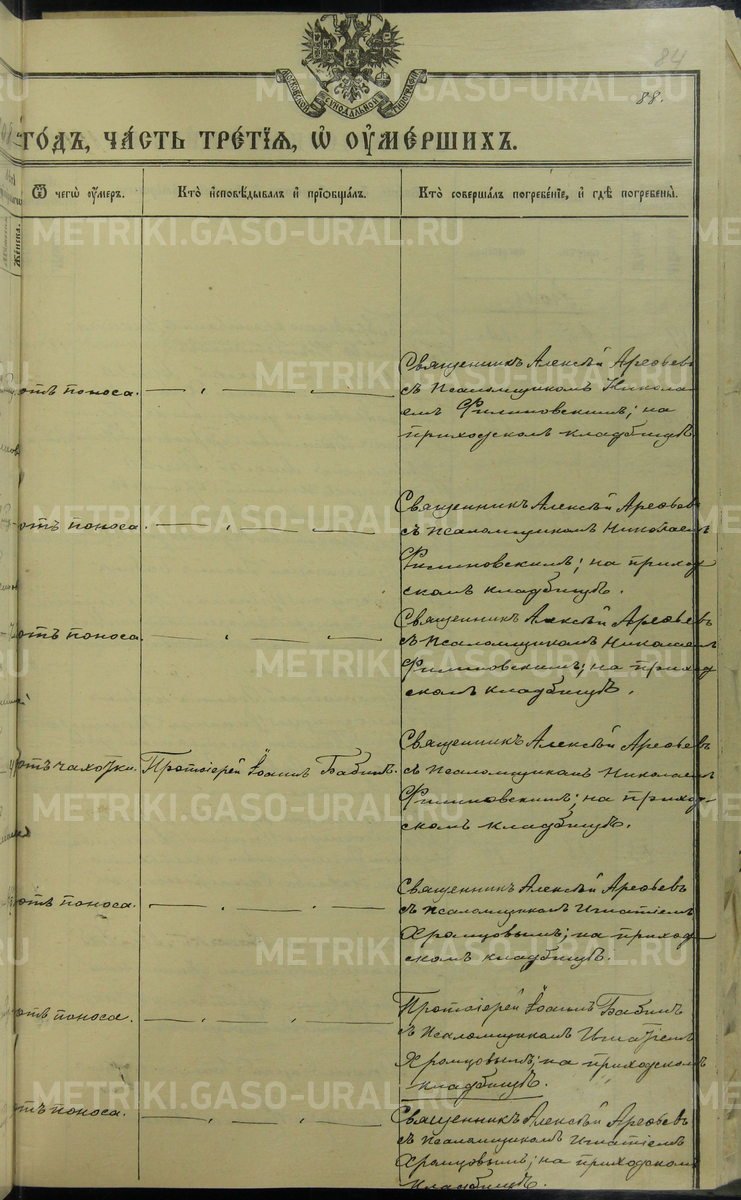 84
88.
МОСКОВСКОЙ СѴНОДАЛЬНОЙ ТИПОГРАФІИ
го́дъ, ча́сть тре́тїѧ, ѡ оу҆ме́ршихъ.
Ѿ чегѡ̀ оу҆́меръ.
Кто̀ и҆сповѣ́дывалъ и҆ прїѡбща́лъ.
Кто̀ соверша́лъ погребе́нїе, и҆ гдѣ̀ погребены̀.
Же́нска.
отъ поноса.
Священникъ Алексѣй Арефьевъ
съ псаломщикомъ Никола-
емъ Филиповскимъ; на
приходскомъ кладбищѣ
отъ поноса.
Священникъ Алексѣй Арефьевъ
съ псаломщикомъ Николаемъ
Филиповскимъ; на приход-
скомъ кладбищѣ.
отъ поноса
Священникъ Алексѣй Арефьевъ
съ псаломщикомъ Николаемъ
Филиповскимъ; на приход-
скомъ кладбищѣ.
отъ чахотки.
Протоіерей Іоаннъ Бабинъ.
Священникъ Алексѣй Арефьевъ
съ псаломщикомъ Николаемъ
Филиповскимъ; на приход-
скомъ кладбищѣ.
отъ поноса.
Священникъ Алексѣй Арефьевъ
съ псаломщикомъ Игнатіемъ
Хромцовымъ; на приход-
скомъ кладбищѣ.
отъ поноса.
Протоіерей Іоаннъ Бабинъ
съ псаломщикомъ Игнатіемъ
Хромцовымъ; на приходскомъ
кладбищѣ.
отъ поноса.
Священникъ Алексѣй Арефьевъ
съ псаломщикомъ Игнатіемъ
Хромцовымъ; на приходскомъ
кладбищѣ.
METRIKI.GASO-URAL.RU